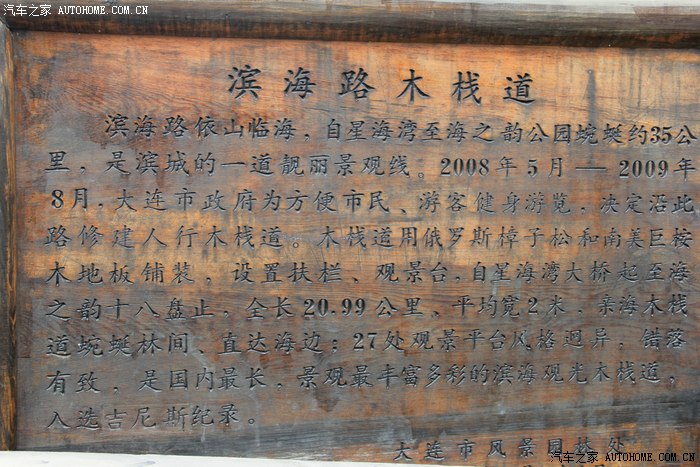 汽车之家 AUTOHOME.COM.CN
滨海路木栈道
滨海路依山临海，自星海湾至海之韵公园蜿蜒约35公
里，是滨城的一道靓丽景观线。2008年5月—2009年
8月，大连市政府为方便市民、游客健身游览，决定沿此
路修建人行木栈道。木栈道用俄罗斯樟子松和南美巨桉
木地板铺装，设置扶栏、观景台，自星海湾大桥起至海
之韵十八盘止，全长20.99公里、平均宽2米．亲海木栈
道蜿蜒林间、直达海边；27处观景平台风格迥异，错落
有致，是国内最长，景观最丰富多彩的滨海观光木栈道，
入选吉尼斯纪录。
大连市风景园林处
汽车之家 AUTOHOME.COM.CN